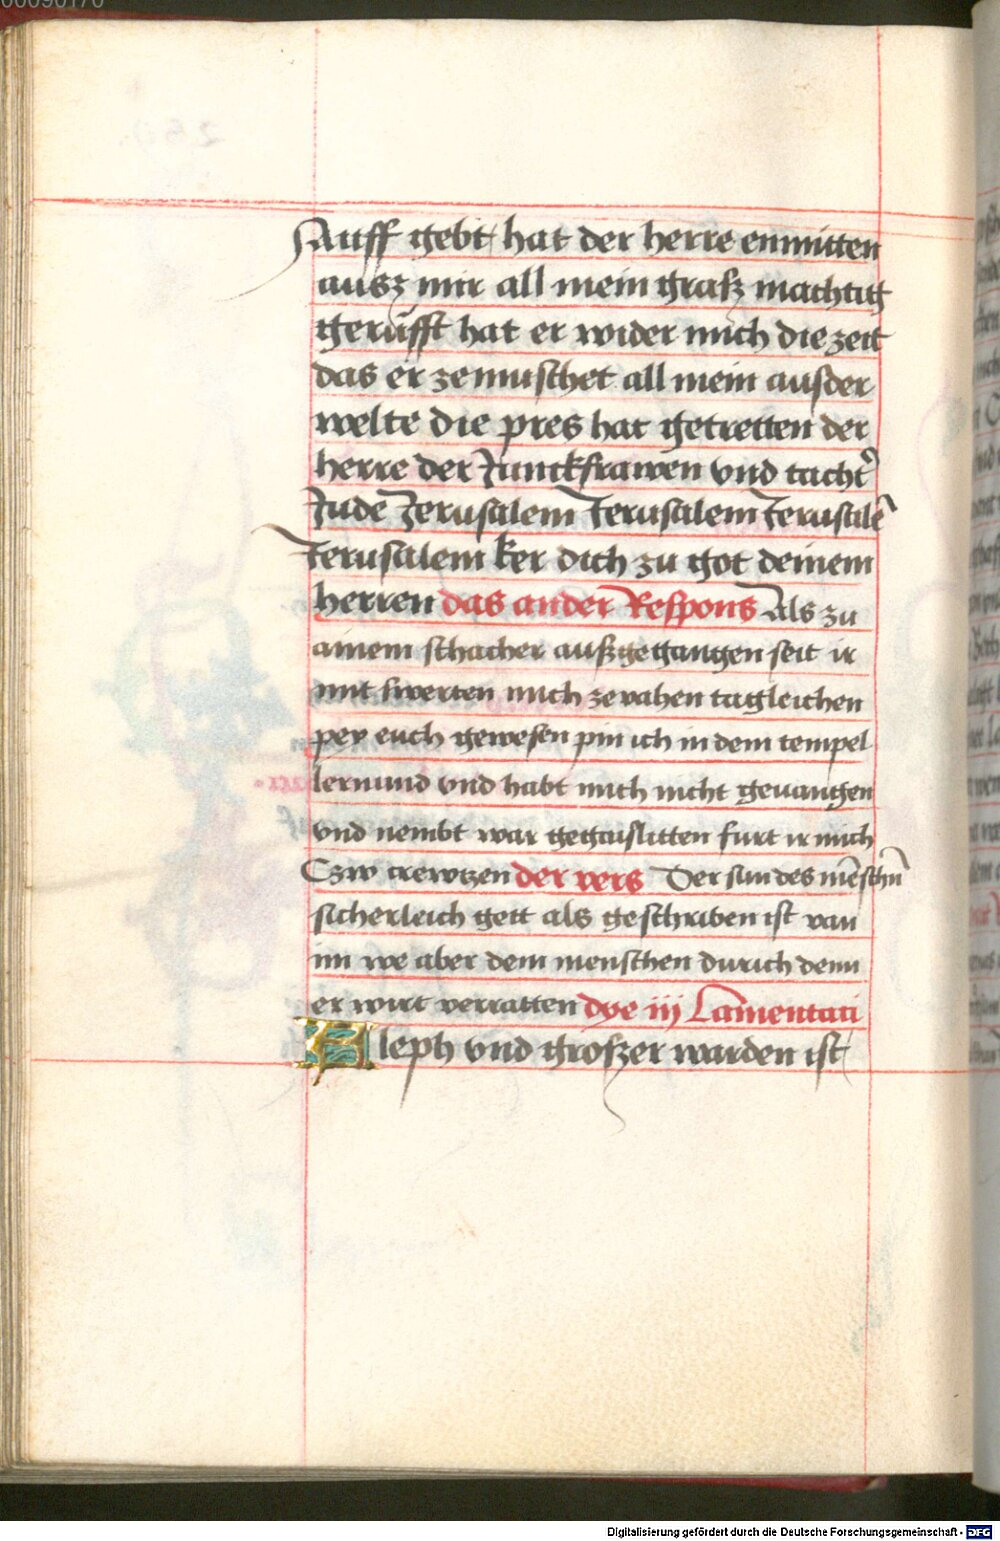 Auff gebt hat der herre enmitten
ausz mir all mein grasz machtig
gerufft hat er wider mich die zeit
das er zemuschet all mein ausder
welte die pres hat getretten der
herre der Junckfrawen vnd tacht̓
Jude Jerusalem Jerusalem Jerusalē
Jerusalem ker dich zu got deinem
herren das ander Respons Als zu
ainem schacher außgegangen seit ir
mit swerten mich ze vahen tagleichen
pey euch gewesen pin ich in dem tempel
lernund vnd habt mich nicht geuangen
vnd nembt war gegauslitten furt ir mich
Czw crewtzen der vers Der sun des mēschn̄
sicherleich gett als geschriben ist van
im we aber dem menschen durich denn
er wirt verratten dye iij Lamentati
Aleph vnd groszer warden ist
Digitalisierung gefördert durch die Deutsche Forschungsgemeinschaft - DFG